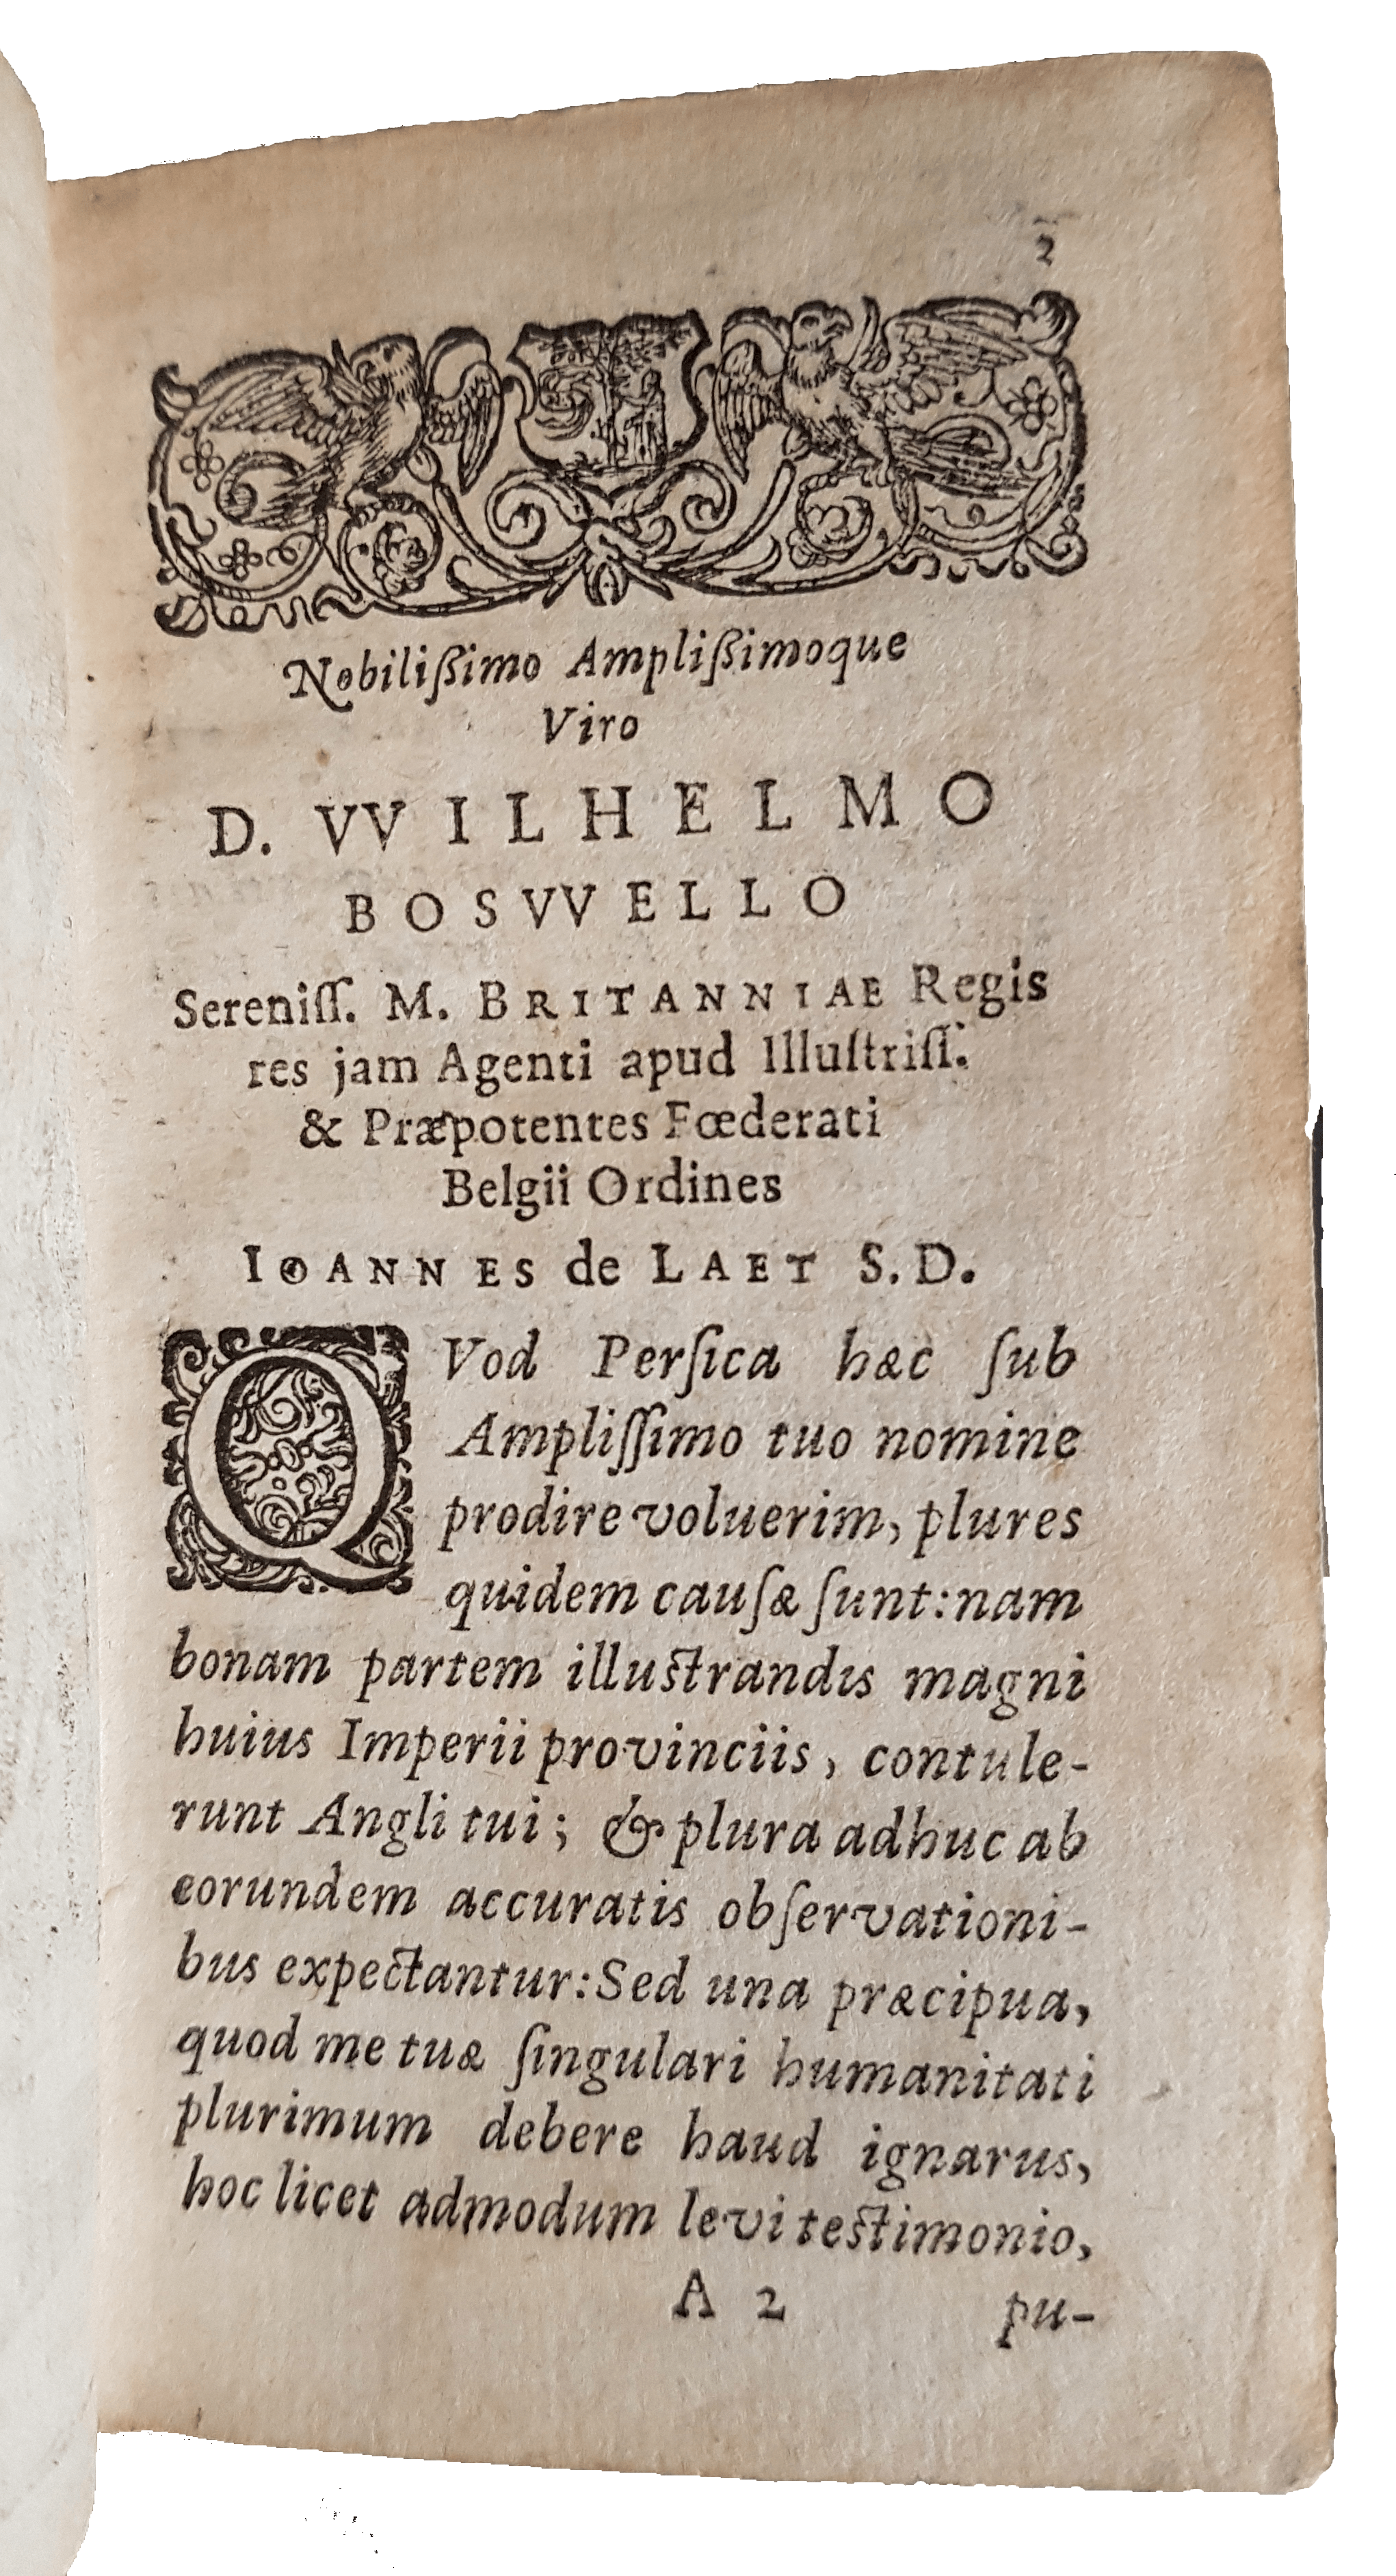 2
Nobilißimo Amplißimoque
Viro
D. VVILHELMO
BOSVVELLO
Sereniſſ. M. BRITANNIAE Regis
res jam Agenti apud Illuſtriſſ.
& Præpotentes Fœderati
Belgii Ordines
IOANNES de LAET S.D.
QVod Perſica hæc ſub
Ampliſſimo tuo nomine
prodire voluerim, plures
quidem cauſæ ſunt: nam
bonam partem illuſtrandis magni
huius Imperii provinciis, contule-
runt Angli tui; & plura adhuc ab
eorundem accuratis obſervationi-
bus expectantur: Sed una præcipua,
quod me tuæ ſingulari humanitati
plurimum debere haud ignarus,
hoc licet admodum levi teſtimonio,
A 2
pu-